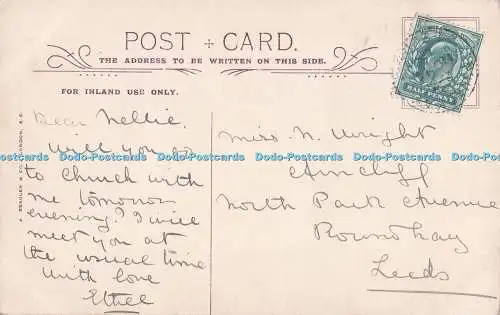 POST CARD.
THE ADDRESS TO BE WRITTEN ON THIS SIDE.
FOR INLAND USE ONLY.
HALFPENNY
Dear Nellie.
Will you go
to church with
me tomorrow
evening? I will
meet you at
the usual time
With love
Ethel
Miss. N. Wright
Arncliff
North Park Avenue
Roundhay
Leeds
Dodo-Postcards Dodo-Postcards Dodo-Postcards Dodo-Postcards Dodo-Postcards